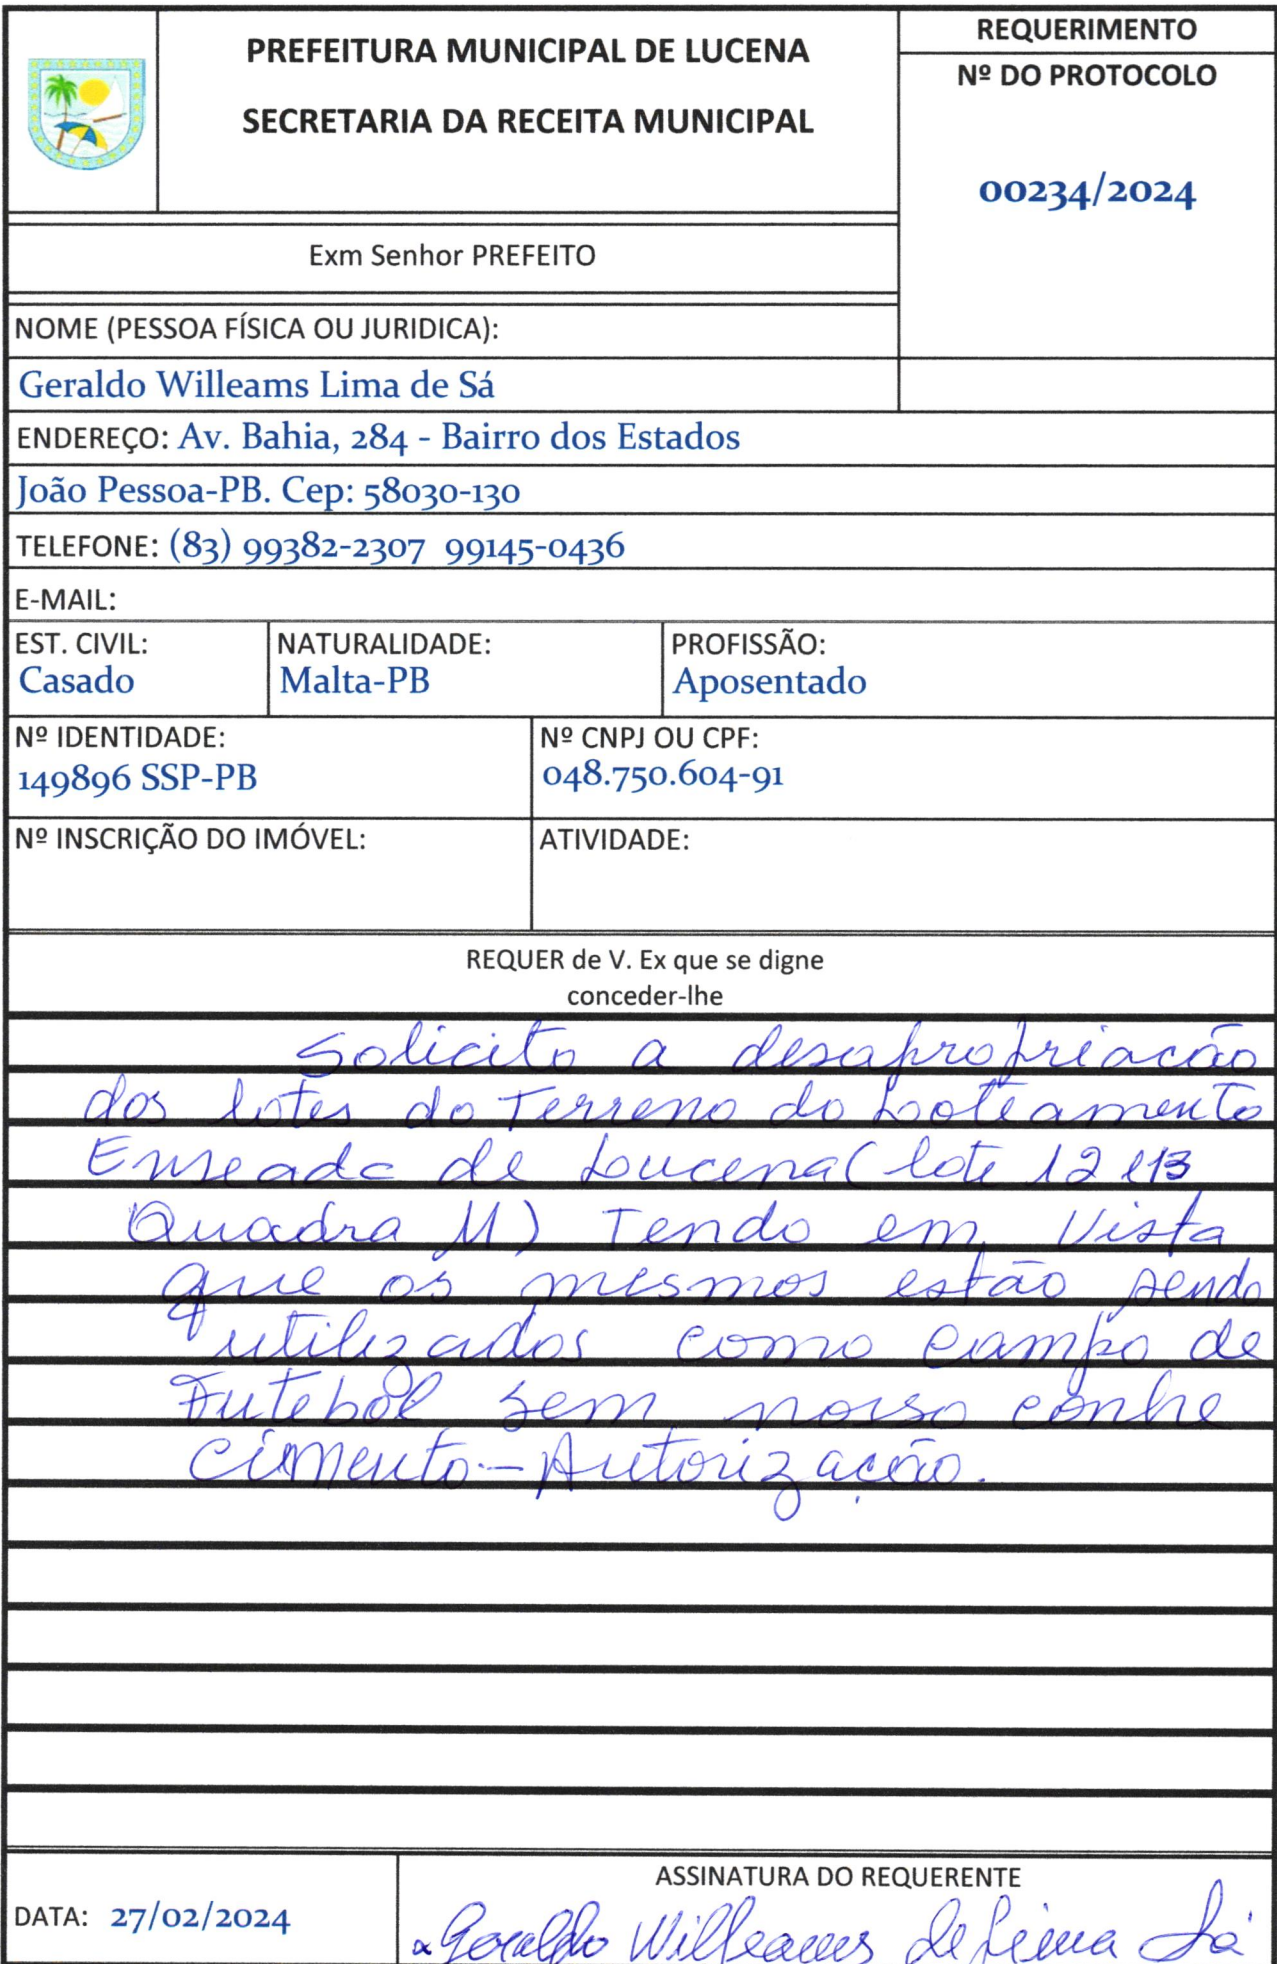 PREFEITURA MUNICIPAL DE LUCENA
SECRETARIA DA RECEITA MUNICIPAL
REQUERIMENTO
Nº DO PROTOCOLO
00234/2024
Exm Senhor PREFEITO
NOME (PESSOA FÍSICA OU JURIDICA):
Geraldo Willeams Lima de Sá
ENDEREÇO: Av. Bahia, 284 - Bairro dos Estados
João Pessoa-PB. Cep: 58030-130
TELEFONE: (83) 99382-2307 99145-0436
E-MAIL:
EST. CIVIL:
Casado
NATURALIDADE:
Malta-PB
PROFISSÃO:
Aposentado
Nº IDENTIDADE:
149896 SSP-PB
Nº CNPJ OU CPF:
048.750.604-91
Nº INSCRIÇÃO DO IMÓVEL:
ATIVIDADE:
REQUER de V. Ex que se digne
conceder-lhe
Solicito a desapropriacão
dos lotes do Terreno do Loteamento
Enseada de Lucena (lote 12 e 13
Quadra M) Tendo em Vista
que os mesmos estão sendo
utilizados como campo de
Futebol sem nosso conhe
cimento - Autorização.
DATA: 27/02/2024
ASSINATURA DO REQUERENTE
Geraldo Willeams de Lima Sá